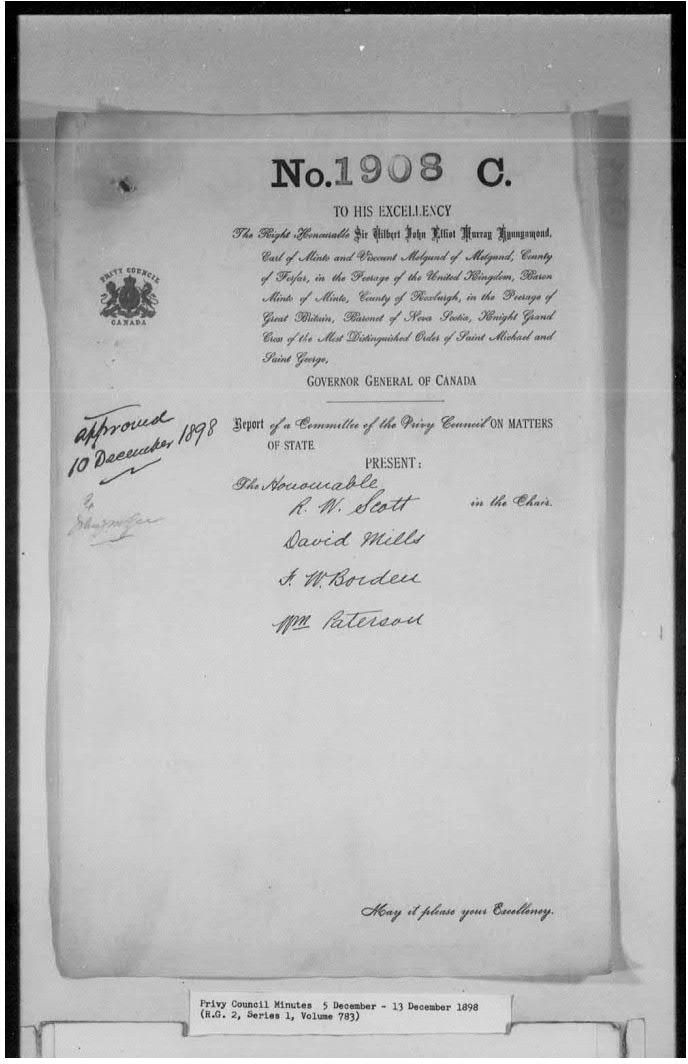 No. 1908 C.
TO HIS EXCELLENCY
The Right Honourable Sir Gilbert John Elliot Murray Kynnynmond,
Earl of Minto and Viscount Melgund of Melgund, County
of Forfar, in the Peerage of the United Kingdom, Baron
Minto of Minto, County of Roxburgh, in the Peerage of
Great Britain, Baronet of Nova Scotia, Knight Grand
Cross of the Most Distinguished Order of Saint Michael and
Saint George,
GOVERNOR GENERAL OF CANADA
PRIVY COUNCIL
CANADA
approved
10 December 1898
Report of a Committee of the Privy Council ON MATTERS
OF STATE
PRESENT:
The Honourable
R. W. Scott in the Chair.
David Mills
F. W. Borden
Wm Paterson
May it please your Excellency.
Privy Council Minutes 5 December - 13 December 1898
(R.G. 2, Series 1, Volume 783)